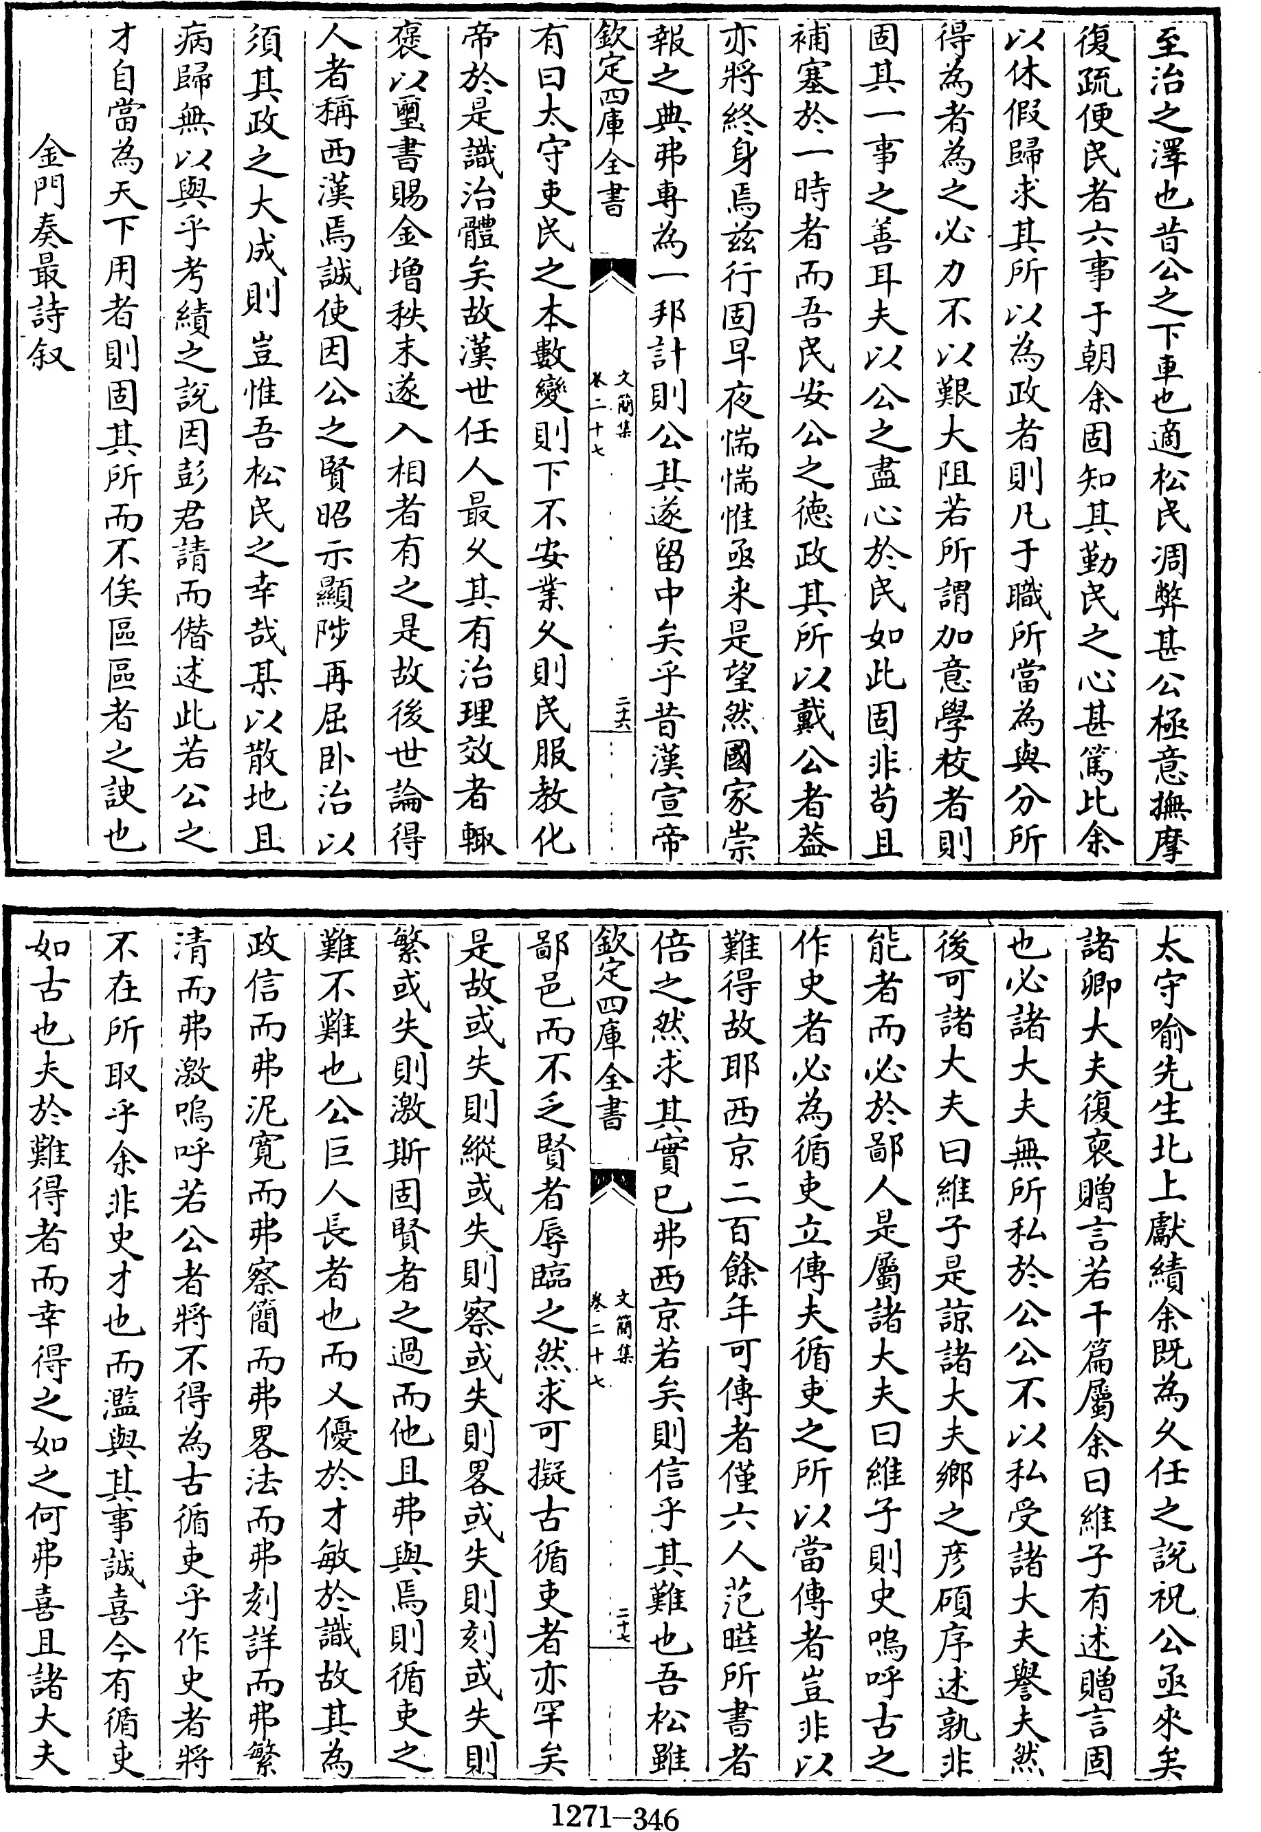 至治之澤也昔公之下車也適松民凋弊甚公極意撫摩
復疏便民者六事于朝余固知其勤民之心甚篤比余
以休假歸求其所以為政者則凡于職所當為與分所
得為者為之必力不以艱大阻若所謂加意學校者則
固其一事之善耳夫以公之盡心於民如此固非苟且
補塞於一時者而吾民安公之德政其所以戴公者葢
亦將終身焉兹行固早夜惴惴惟亟来是望然國家崇
報之典弗專為一邦計則公其遂留中矣乎昔漢宣帝
欽定四庫全書
文簡集
卷二十七
二十六
有曰太守吏民之本數變則下不安業乆則民服教化
帝於是識治體矣故漢世任人最乆其有治理效者輙
褒以璽書賜金增秩末遂入相者有之是故後世論得
人者稱西漢焉誠使因公之賢昭示顯陟再屈卧治以
須其政之大成則豈惟吾松民之幸哉某以散地且
病歸無以與乎考績之說因彭君請而僭述此若公之
才自當為天下用者則固其所而不俟區區者之諛也
金門奏最詩叙
太守喻先生北上獻績余既為乆任之說祝公亟來矣
諸卿大夫復裒贈言若干篇屬余曰維子有述贈言固
也必諸大夫無所私於公公不以私受諸大夫譽夫然
後可諸大夫曰維子是諒諸大夫鄉之彦碩序述孰非
能者而必於鄙人是屬諸大夫曰維子則史嗚呼古之
作史者必為循吏立傳夫循吏之所以當傳者豈非以
難得故耶西京二百餘年可傳者僅六人范曄所書者
倍之然求其實已弗西京若矣則信乎其難也吾松雖
欽定四庫全書
文簡集
卷二十七
二十七
鄙邑而不乏賢者辱臨之然求可擬古循吏者亦罕矣
是故或失則縱或失則察或失則畧或失則刻或失則
繁或失則激斯固賢者之過而他且弗與焉則循吏之
難不難也公巨人長者也而又優於才敏於識故其為
政信而弗泥寛而弗察簡而弗畧法而弗刻詳而弗繁
清而弗激嗚呼若公者將不得為古循吏乎作史者將
不在所取乎余非史才也而濫與其事誠喜今有循吏
如古也夫於難得者而幸得之如之何弗喜且諸大夫
1271-346